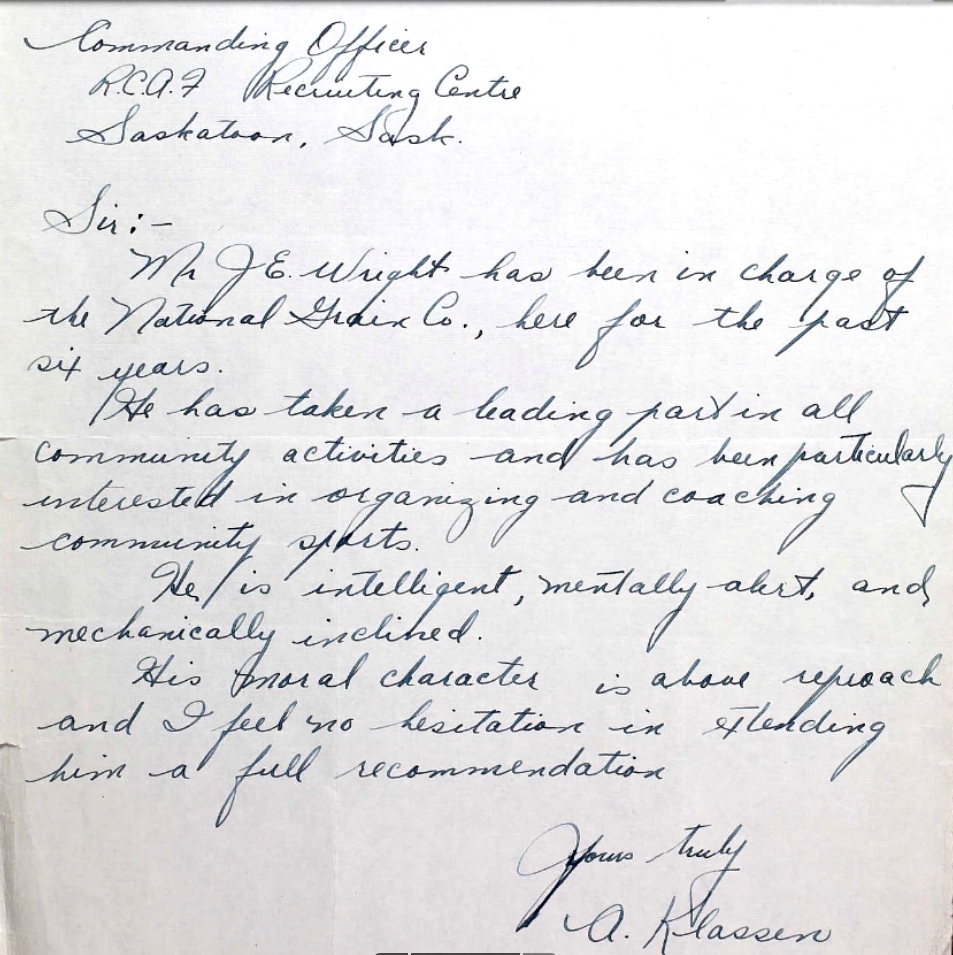 Commanding Officer
R.C.A.F Recruiting Centre
Saskatoon, Sask.
Sir:-
Mr J E. Wright has been in charge of
the National Grain Co., here for the past
six years.
He has taken a leading part in all
community activities and has been particularly
interested in organizing and coaching
community sports.
He is intelligent, mentally alert, and
mechanically inclined.
His moral character is above reproach
and I feel no hesitation in extending
him a full recommendation
Yours truly
A. Klassen